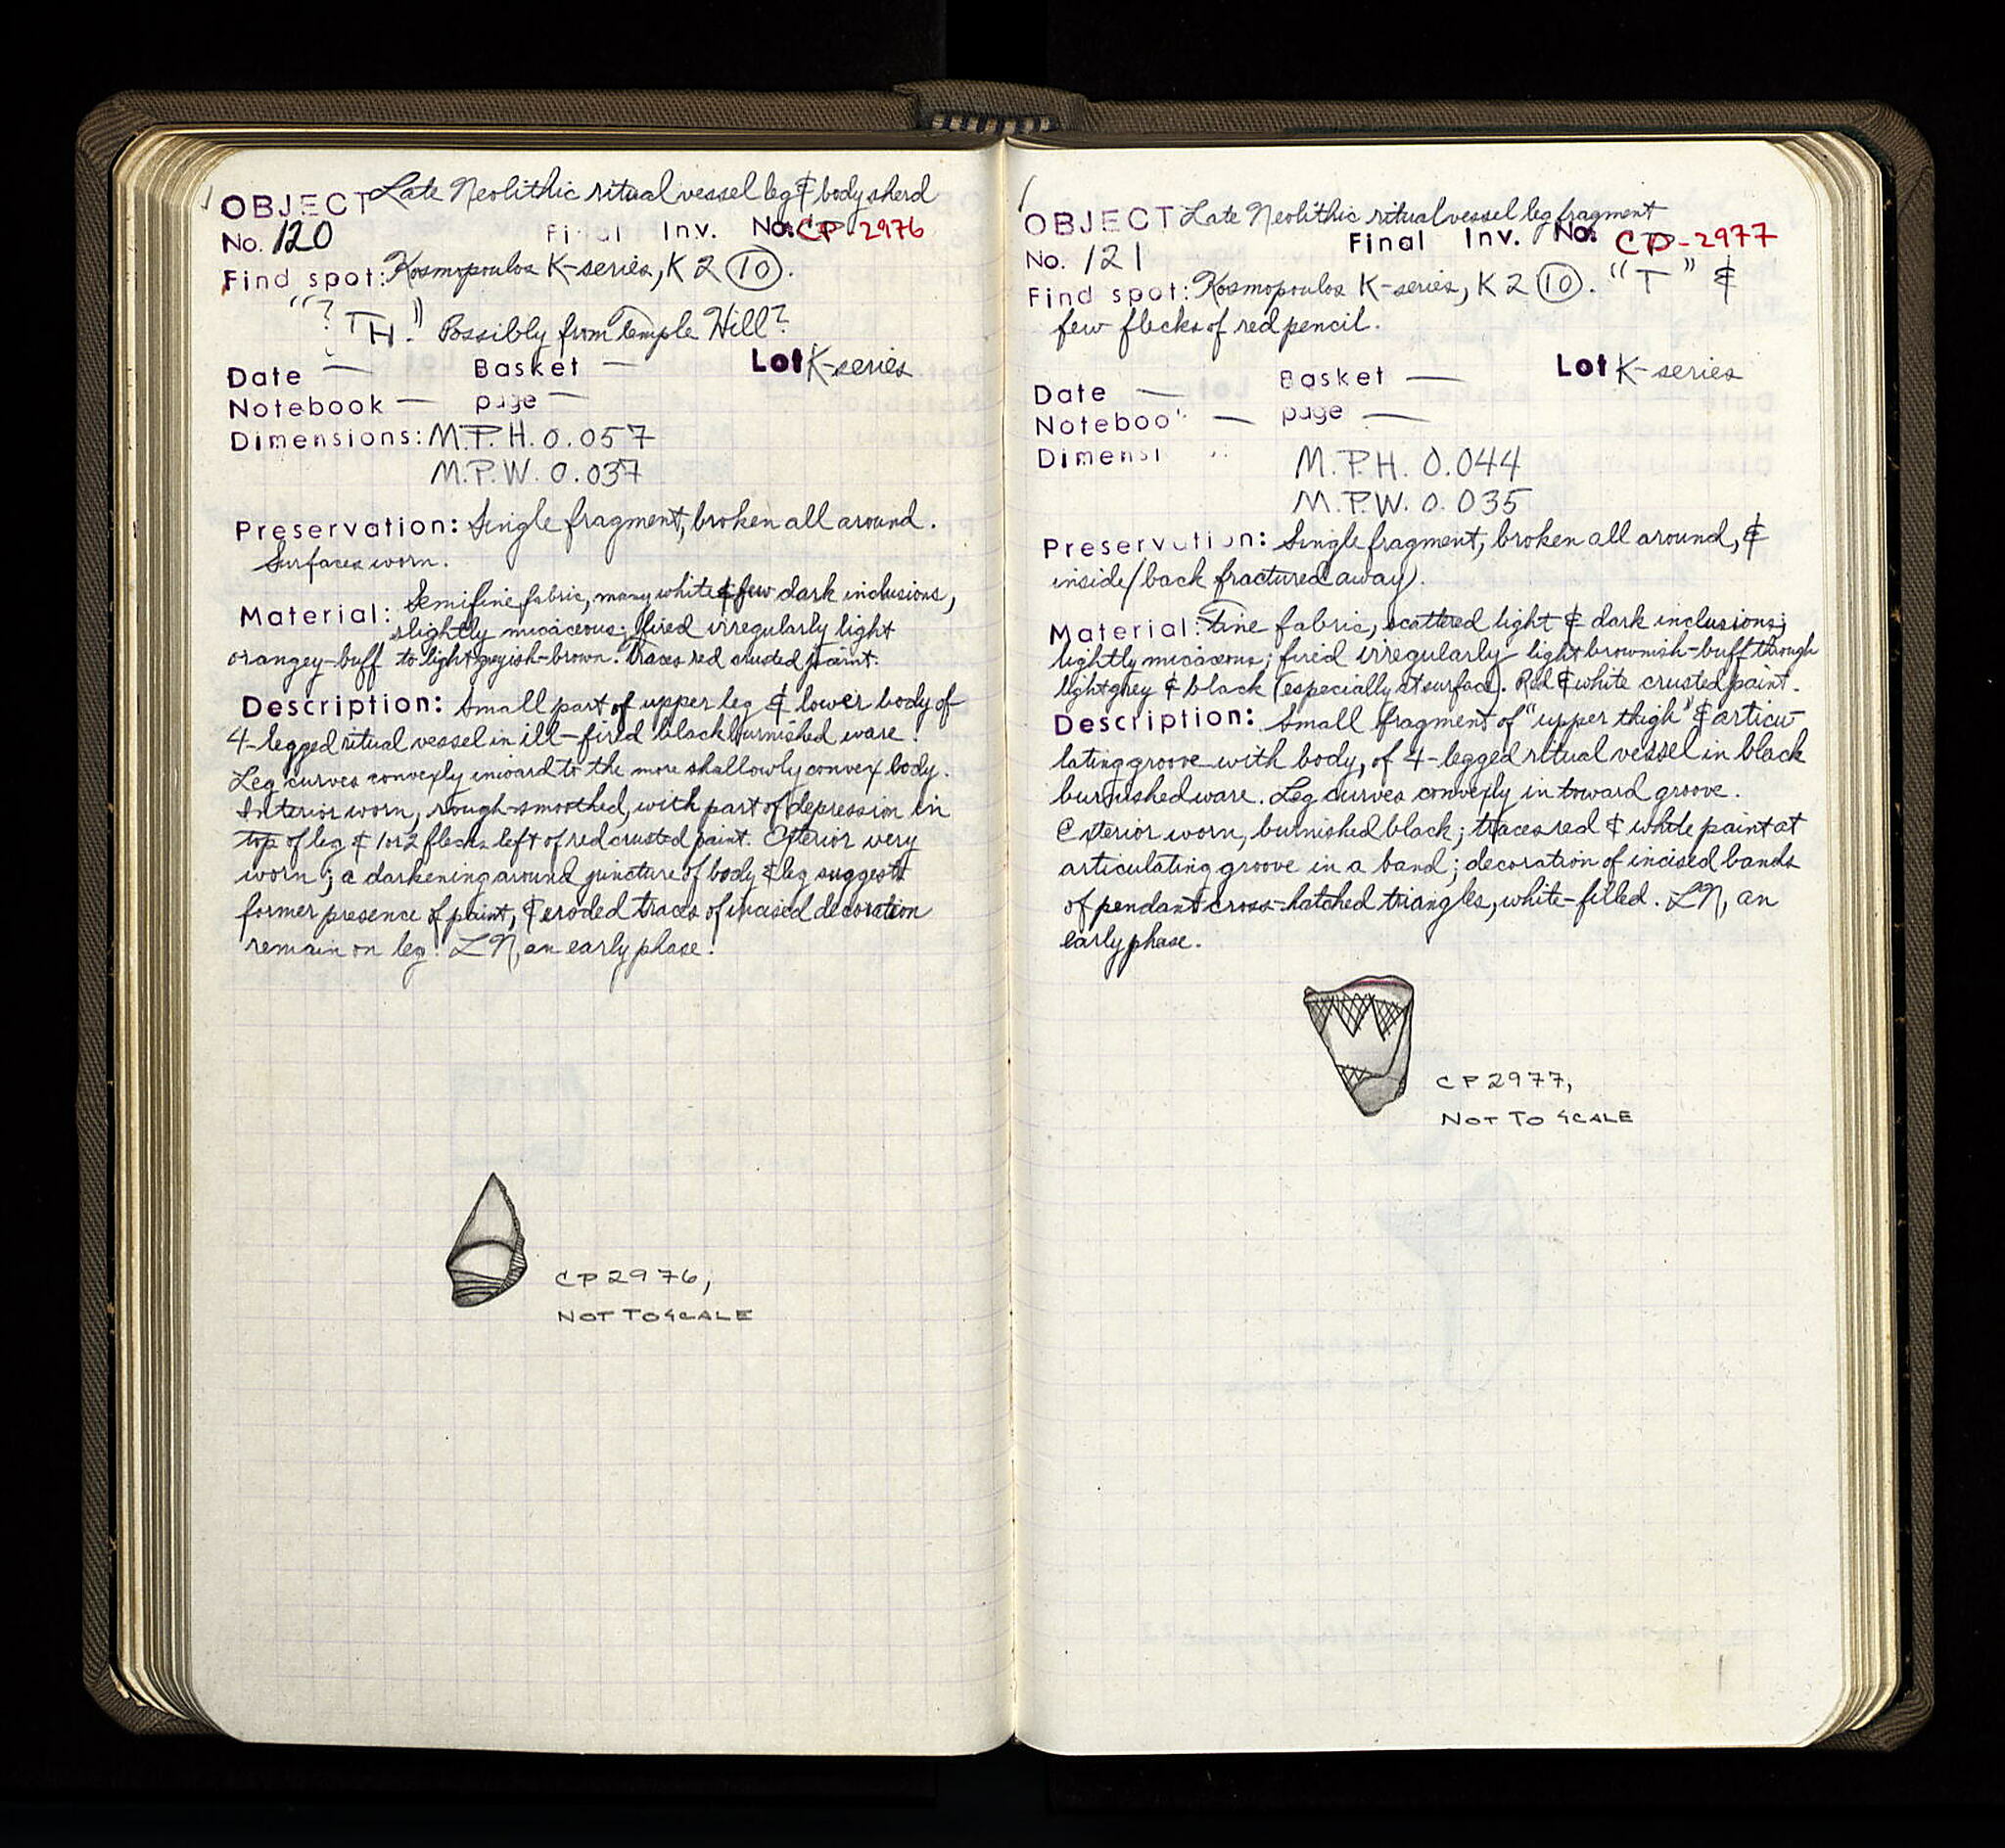 OBJECT Late Neolithic ritual vessel leg & body sherd
No. 120 Final Inv. No. CP-2976
Find spot: Kosmopoulos K-series, K 2 (10).
"? TH." Possibly from Temple Hill?
Date — Basket — Lot K-series
Notebook — page —
Dimensions: M.P.H. 0.057
M.P.W. 0.037
Preservation: Single fragment, broken all around.
Surfaces worn.
Material: Semifine fabric, many white & few dark inclusions,
slightly micaceous; fired irregularly light
orangey-buff to light greyish-brown. Traces red crusted paint.
Description: Small part of upper leg & lower body of
4-legged ritual vessel in ill-fired black burnished ware.
Leg curves convexly inward to the more shallowly convex body.
Interior worn, rough-smoothed, with part of depression in
top of leg & 1 or 2 flecks left of red crusted paint. Exterior very
worn; a darkening around juncture of body & leg suggests
former presence of paint, & eroded traces of incised decoration
remain on leg. LN, an early phase.
CP 2976,
NOT TO SCALE
OBJECT Late Neolithic ritual vessel leg fragment
No. 121 Final Inv. No. CP-2977
Find spot: Kosmopoulos K-series, K 2 (10). "T" &
few flecks of red pencil.
Date — Basket — Lot K-series
Notebook — page —
Dimensi
M.P.H. 0.044
M.P.W. 0.035
Preservation: Single fragment, broken all around, &
inside/back fractured away).
Material: Fine fabric, scattered light & dark inclusions;
lightly micaceous; fired irregularly light brownish-buff through
light grey & black (especially at surface). Red & white crusted paint.
Description: Small fragment of "upper thigh" & articu-
lating groove with body, of 4-legged ritual vessel in black
burnished ware. Leg curves convexly in toward groove.
Exterior worn, burnished black; traces red & white paint at
articulating groove in a band; decoration of incised bands
of pendant cross-hatched triangles, white-filled. LN, an
early phase.
CP 2977,
NOT TO SCALE